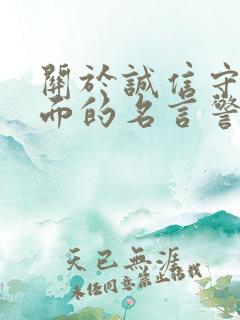 關於誠信守
而的名言警
天已無涯
未经同意禁止転载